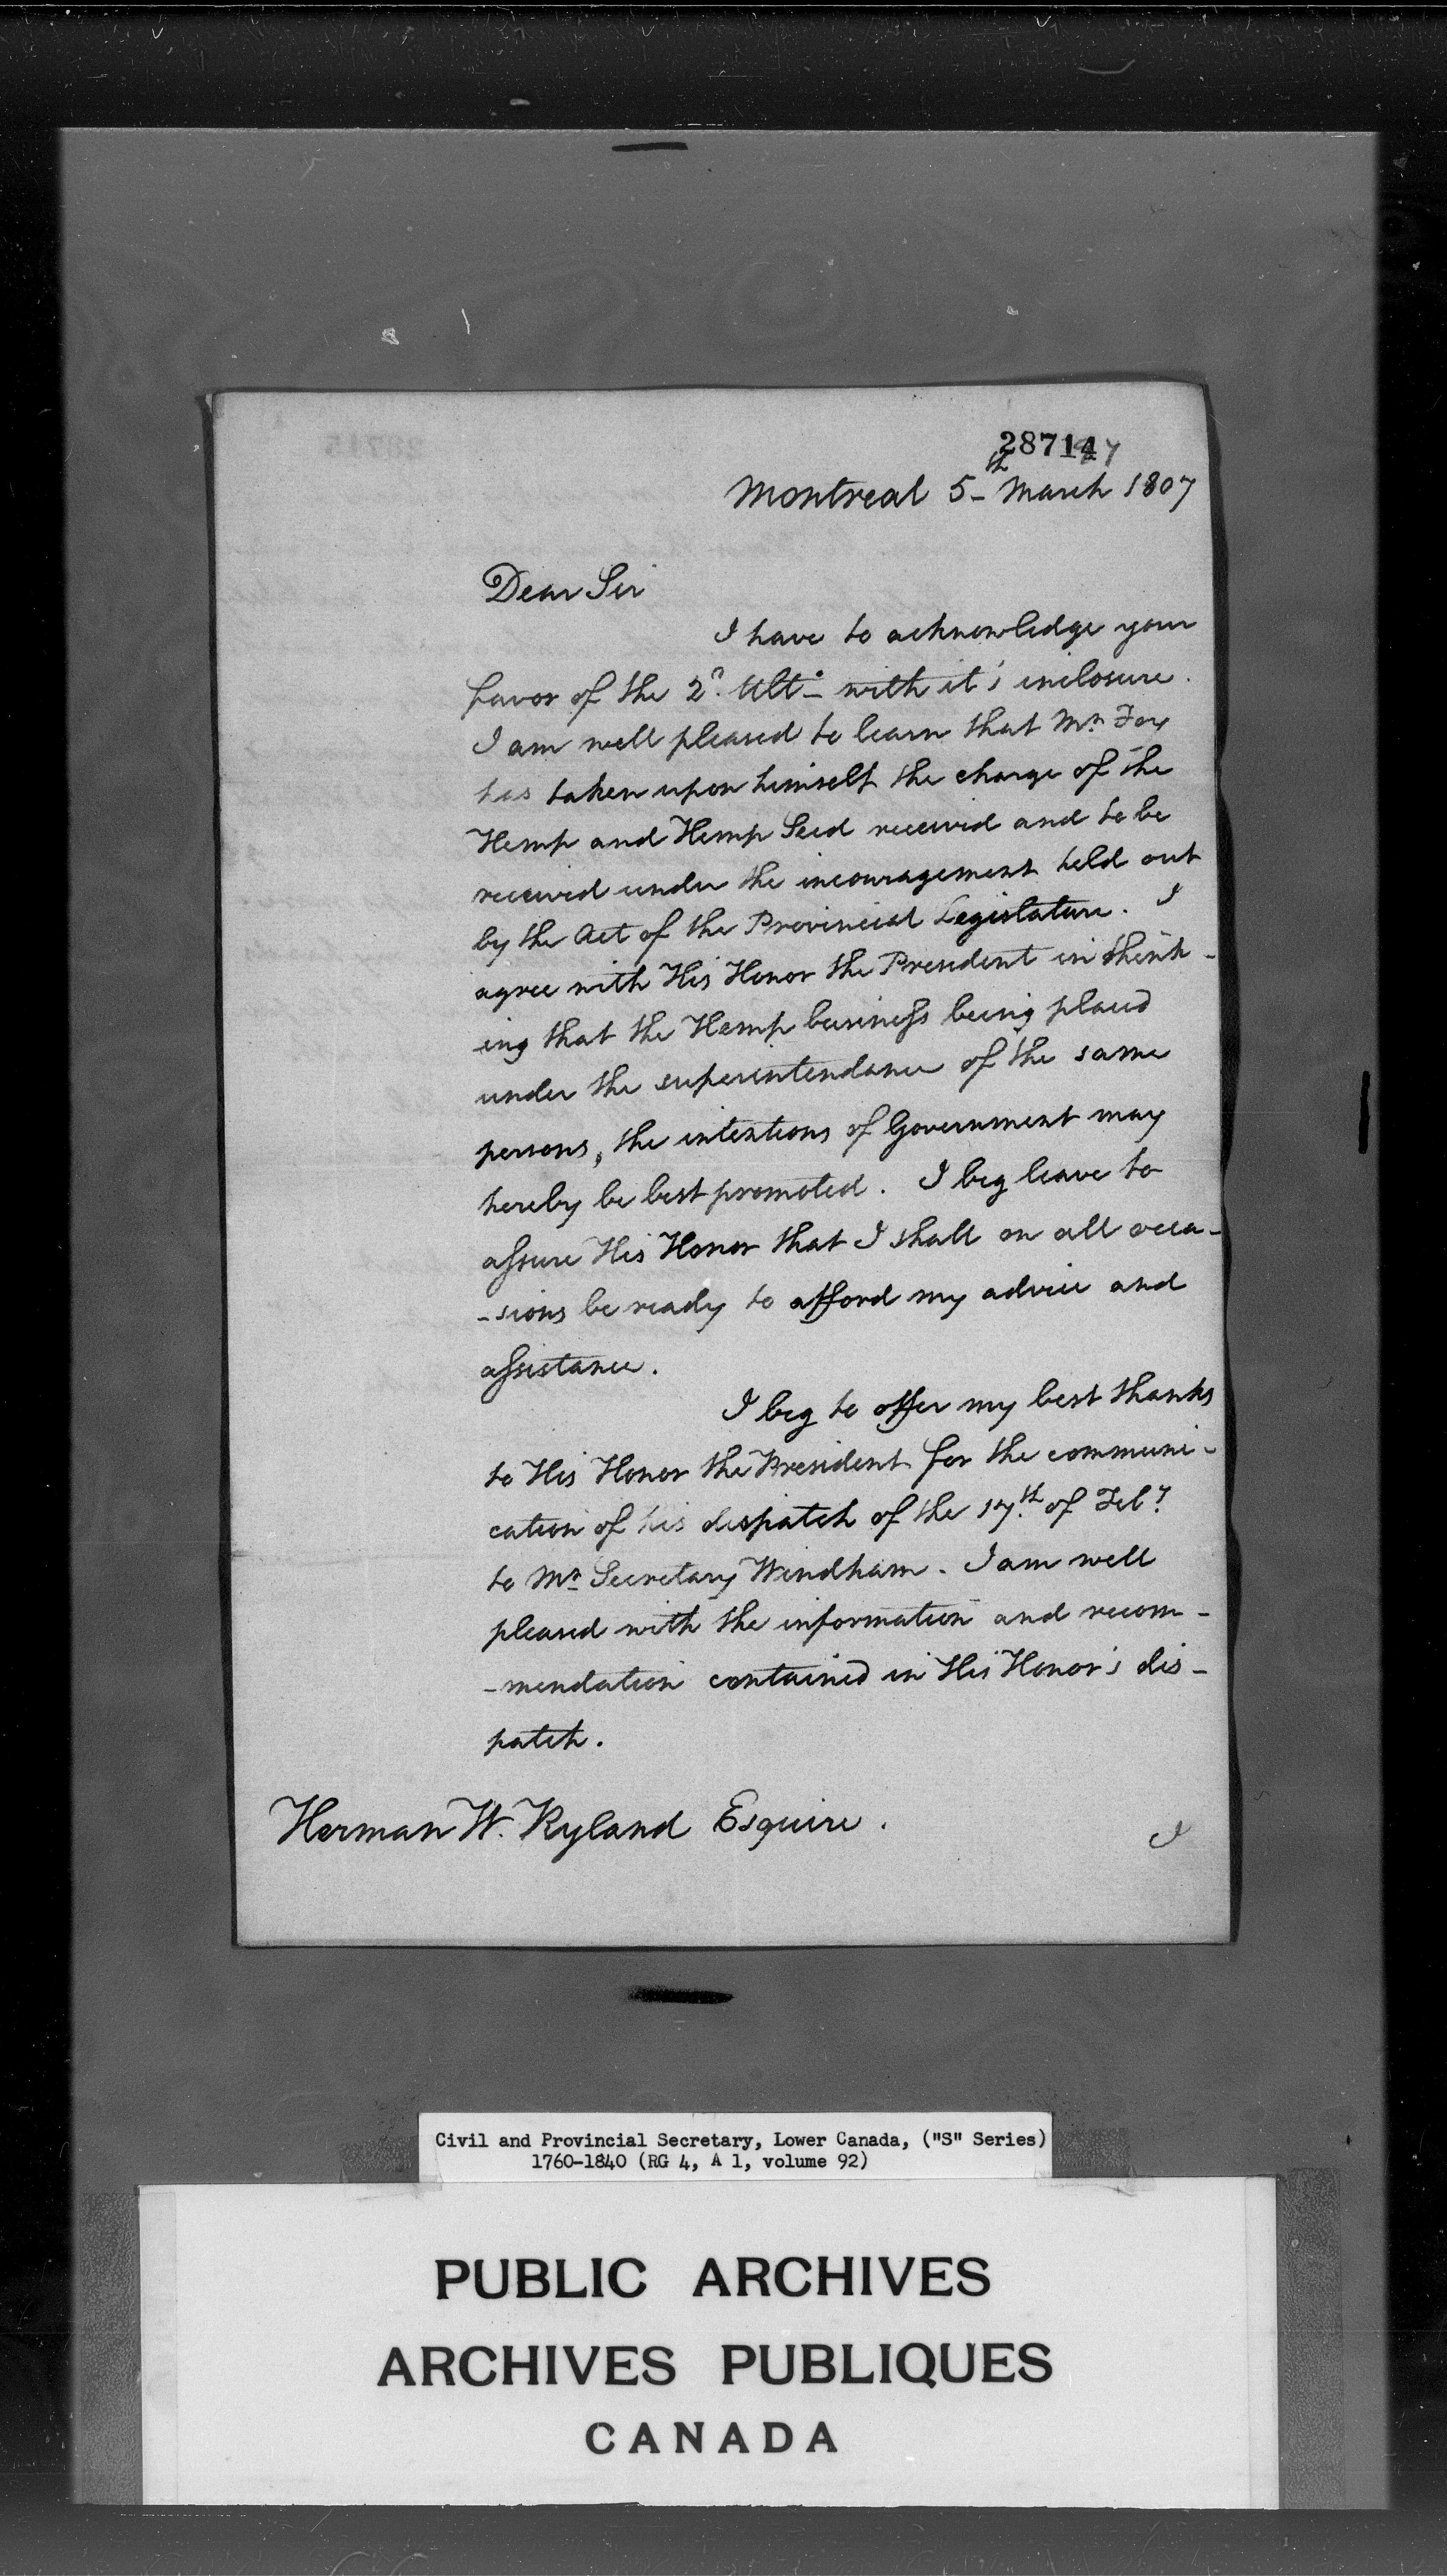 28714
Montreal 5th March 1807
Dear Sir
I have to acknowledge your
favor of the 2d. Ulto_ with it's inclosure.
I am well pleased to learn that Mr. Fox
has taken upon himself the charge of the
Hemp and Hemp Seed received and to be
received under the incouragement held out
by the Act of the Provincial Legislature. I
agree with His Honor the President in think-
ing that the Hemp business being placed
under the superintendance of the same
persons, the intentions of Government may
hereby be best promoted. I beg leave to
assure His Honor that I shall on all occa-
-sions be ready to afford my advice and
assistance.
I beg to offer my best thanks
to His Honor the President for the communi-
cation of his dispatch of the 17th. of Feby.
to Mr. Secretary Windham. I am well
pleased with the information and recom-
-mendation contained in His Honor's dis-
patch.
Herman W. Ryland Esquire.
I
Civil and Provincial Secretary, Lower Canada, ("S" Series)
1760-1840 (RG 4, A 1, volume 92)
PUBLIC ARCHIVES
ARCHIVES PUBLIQUES
CANADA